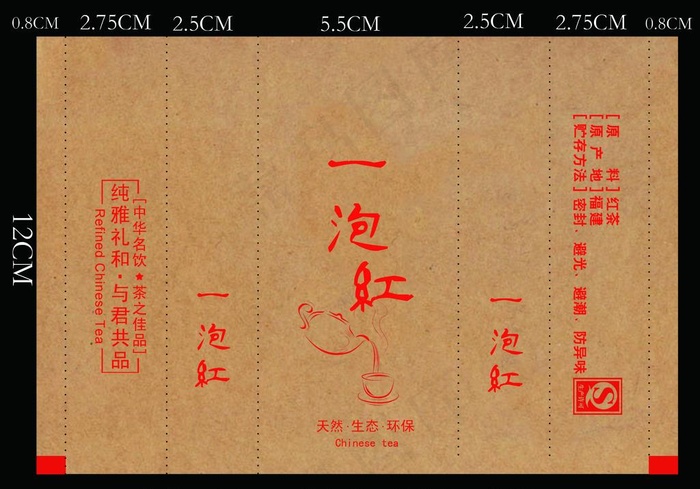 0.8CM
2.75CM
2.5CM
5.5CM
2.5CM
2.75CM
0.8CM
12CM
[中华名饮★茶之佳品]
纯雅礼和·与君共品
Refined Chinese Tea
一泡紅
一泡紅
天然·生态·环保
Chinese tea
一泡紅
[原 料]红茶
[原产地]福建
[贮存方法]密封、避光、避潮、防异味